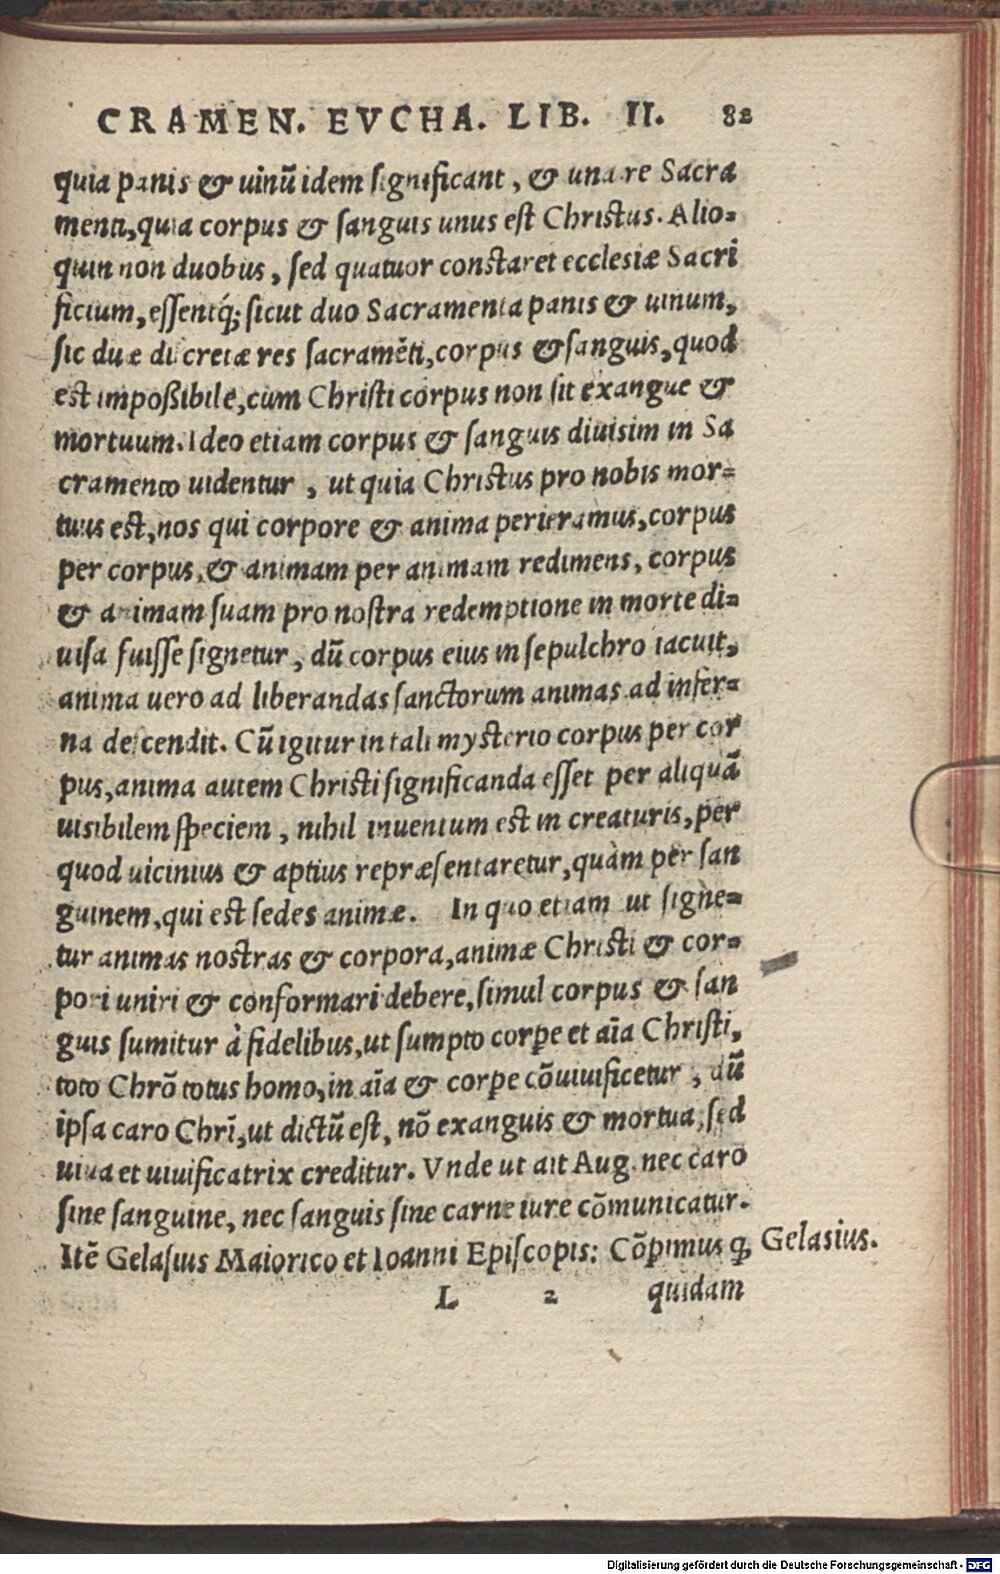 CRAMEN. EVCHA. LIB. II. 82
quia panis & uinũ idem significant, & una re Sacra
menti, quia corpus & sanguis unus est Christus. Alio=
quin non duobus, sed quatuor constaret ecclesiæ Sacri
ficium, essentq́; sicut duo Sacramenta panis & uinum,
sic duæ discretæ res sacramẽti, corpus & sanguis, quod
est impoßibile, cùm Christi corpus non sit exangue &
mortuum. Ideo etiam corpus & sanguis diuisim in Sa
cramento uidentur, ut quia Christus pro nobis mor=
tuus est, nos qui corpore & anima perieramus, corpus
per corpus, & animam per animam redimens, corpus
& animam suam pro nostra redemptione in morte di=
uisa fuisse signetur, dũ corpus eius in sepulchro iacuit,
anima uero ad liberandas sanctorum animas ad infer=
na descendit. Cũ igitur in tali mysterio corpus per cor
pus, anima autem Christi significanda esset per aliquã
uisibilem speciem, nihil inuentum est in creaturis, per
quod uicinius & aptius repræsentaretur, quàm per san
guinem, qui est sedes animæ. In quo etiam ut signe=
tur animas nostras & corpora, animæ Christi & cor=
pori uniri & conformari debere, simul corpus & san
guis sumitur à fidelibus, ut sumpto corpe et aĩa Christi,
toto Chrõ totus homo, in aĩa & corpe cõuiuificetur, dũ
ipsa caro Chrĩ, ut dictũ est, nõ exanguis & mortua, sed
uiua et uiuificatrix creditur. Vnde ut ait Aug. nec caro
sine sanguine, nec sanguis sine carne iure cõmunicatur.
Itẽ Gelasius Maiorico et Ioanni Episcopis: Cõpimus ꝙ Gelasius.
L 2 quidam
Digitalisierung gefördert durch die Deutsche Forschungsgemeinschaft - DFG